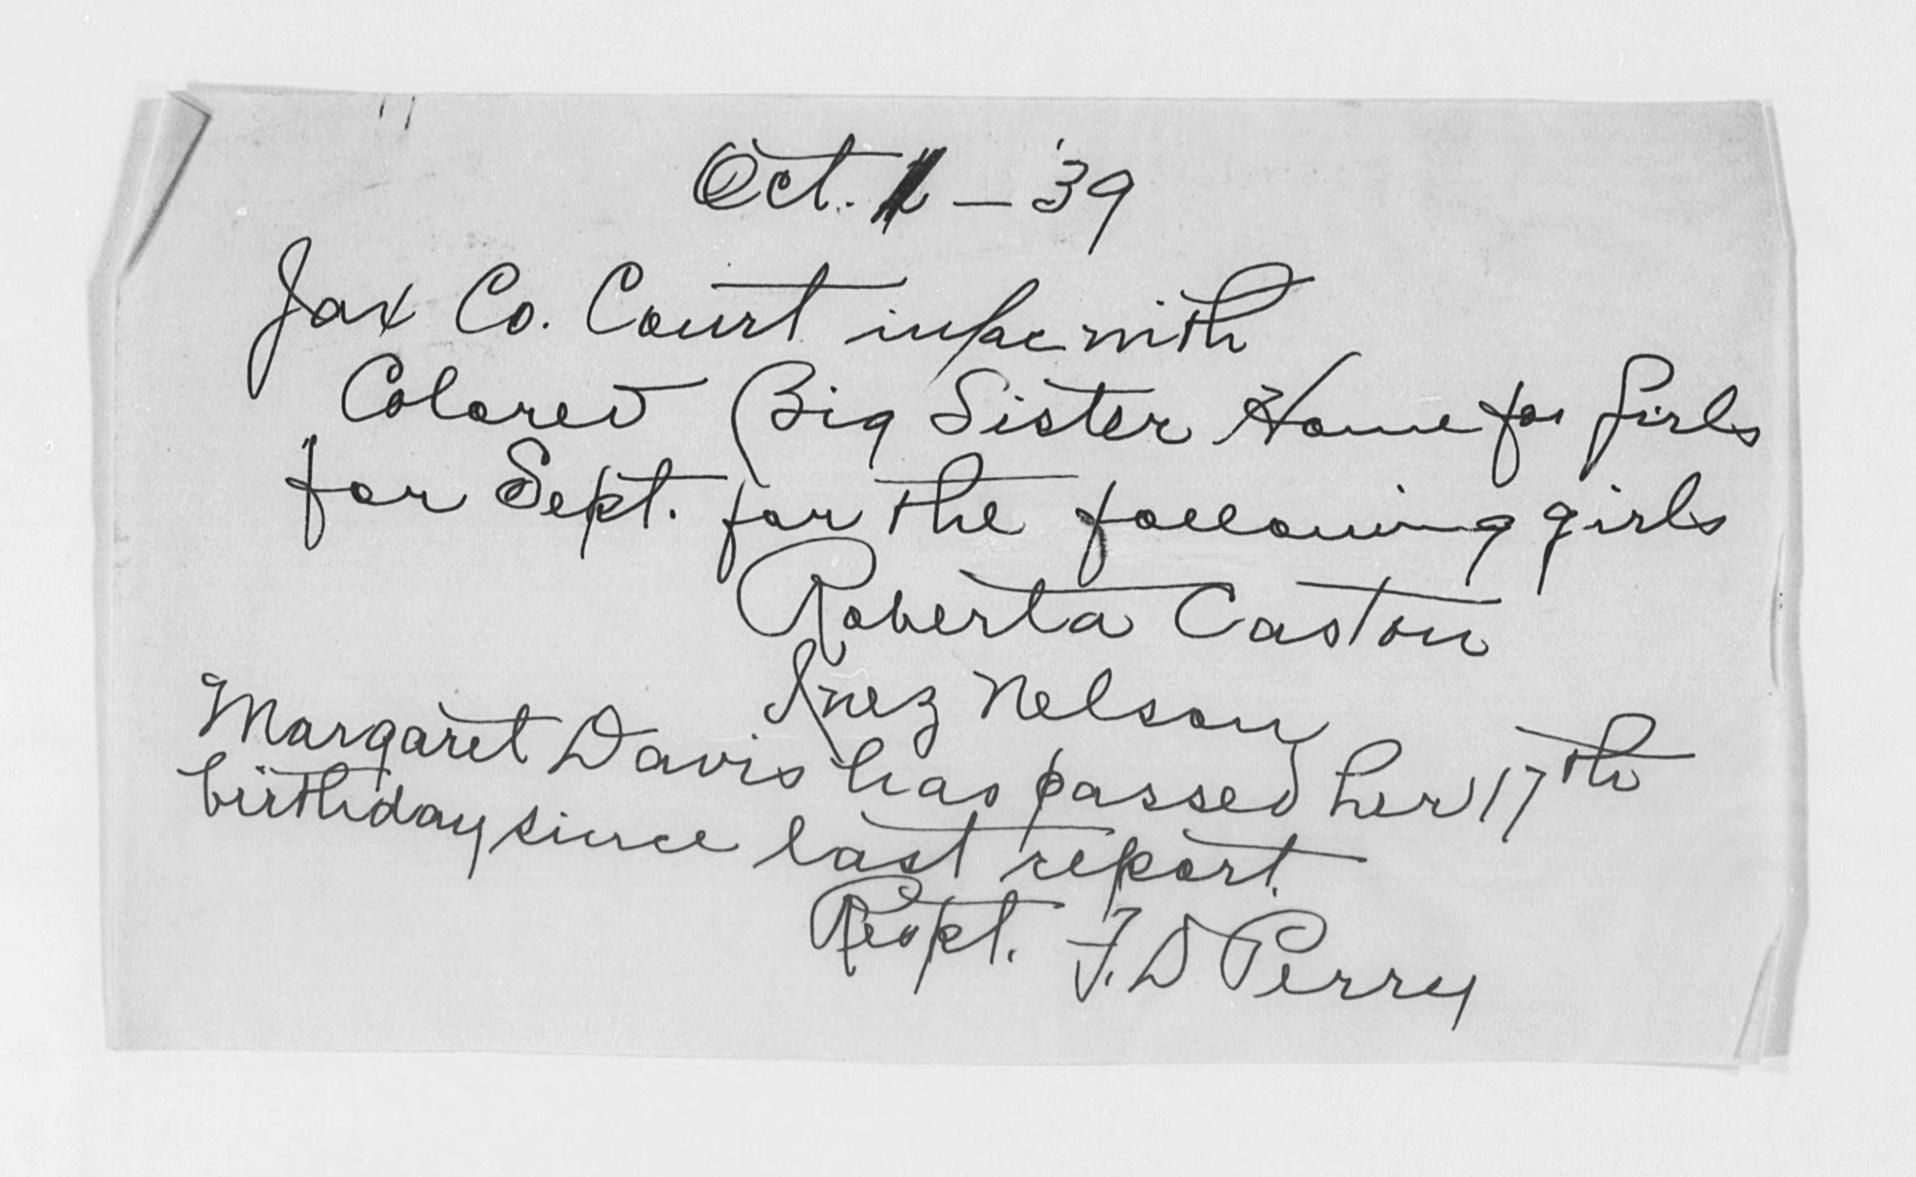 Oct. 1 – '39
Jax Co. Court in/ac with
Colored Big Sister Home for Girls
for Sept. for the following girls
Roberta Caston
Inez Nelson
Margaret Davis has passed her 17th
birthday since last report.
Respt. F. D Perry